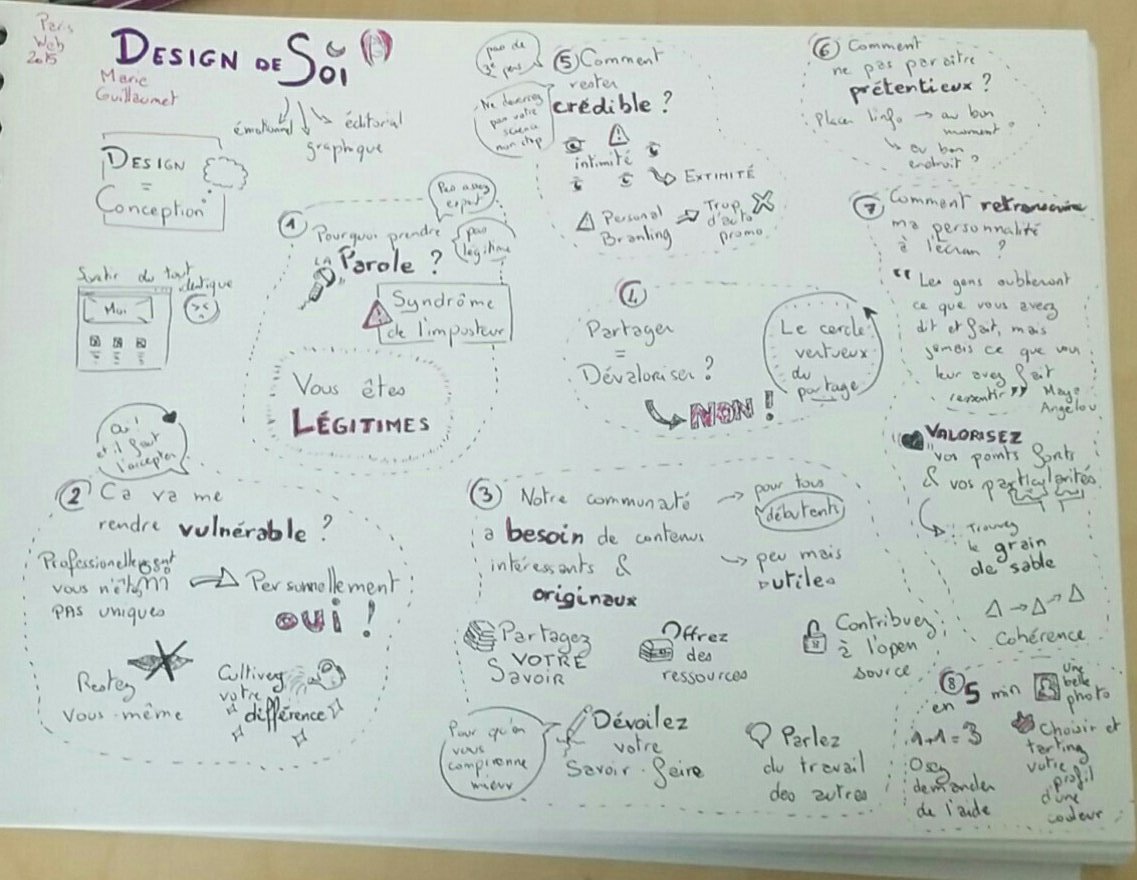 Paris
Web
2015
DESIGN DE SOI
Marie
Guillaumet
émotionnel
éditorial
graphique
DESIGN
=
Conception
Sortir du tout
identique
Moi
1 Pourquoi prendre
LA
Parole ?
Pas assez
expert
pas
légitime
Syndrôme
de l'imposteur
Vous êtes
LÉGITIMES
oui !
et il faut
l'accepter
2 Ca va me
rendre vulnérable ?
Professionellement
vous n'êtes
PAS uniques
Personnellement
OUI !
Restez
Vous-même
Cultivez
votre
différence
3 Notre communauté
a besoin de contenus
intéressants &
originaux
pour tous
débutants
peu mais
utiles
Partagez
VOTRE
Savoir
Offrez
des
ressources
Contribuez
à l'open
source
Pour qu'on
vous
comprenne
mieux
Dévoilez
votre
Savoir-faire
Parlez
du travail
des autres
4
Partager
=
Dévaloriser ?
NON !
Le cercle
vertueux
du
partage
5 Comment
rester
crédible ?
pas de
3e pers
Ne déversez
pas votre
science
non stop
intimité
EXTIMITÉ
Personal
Branding
Trop
d'auto
promo
6 Comment
ne pas paraitre
prétentieux ?
Placer l'info → au bon
moment ?
au bon
endroit ?
7 Comment retranscrire
ma personnalité
à l'écran ?
" Les gens oublieront
ce que vous avez
dit et fait, mais
jamais ce que vous
leur avez fait
ressentir "
Maya
Angelou
VALORISEZ
vos points forts
& vos particularités
Trouvez
le grain
de sable
Cohérence
8
en 5 min
Une
belle
photo
1+1=3
Osez
demander
de l'aide
Choisir et
votre
profil
d'une
couleur